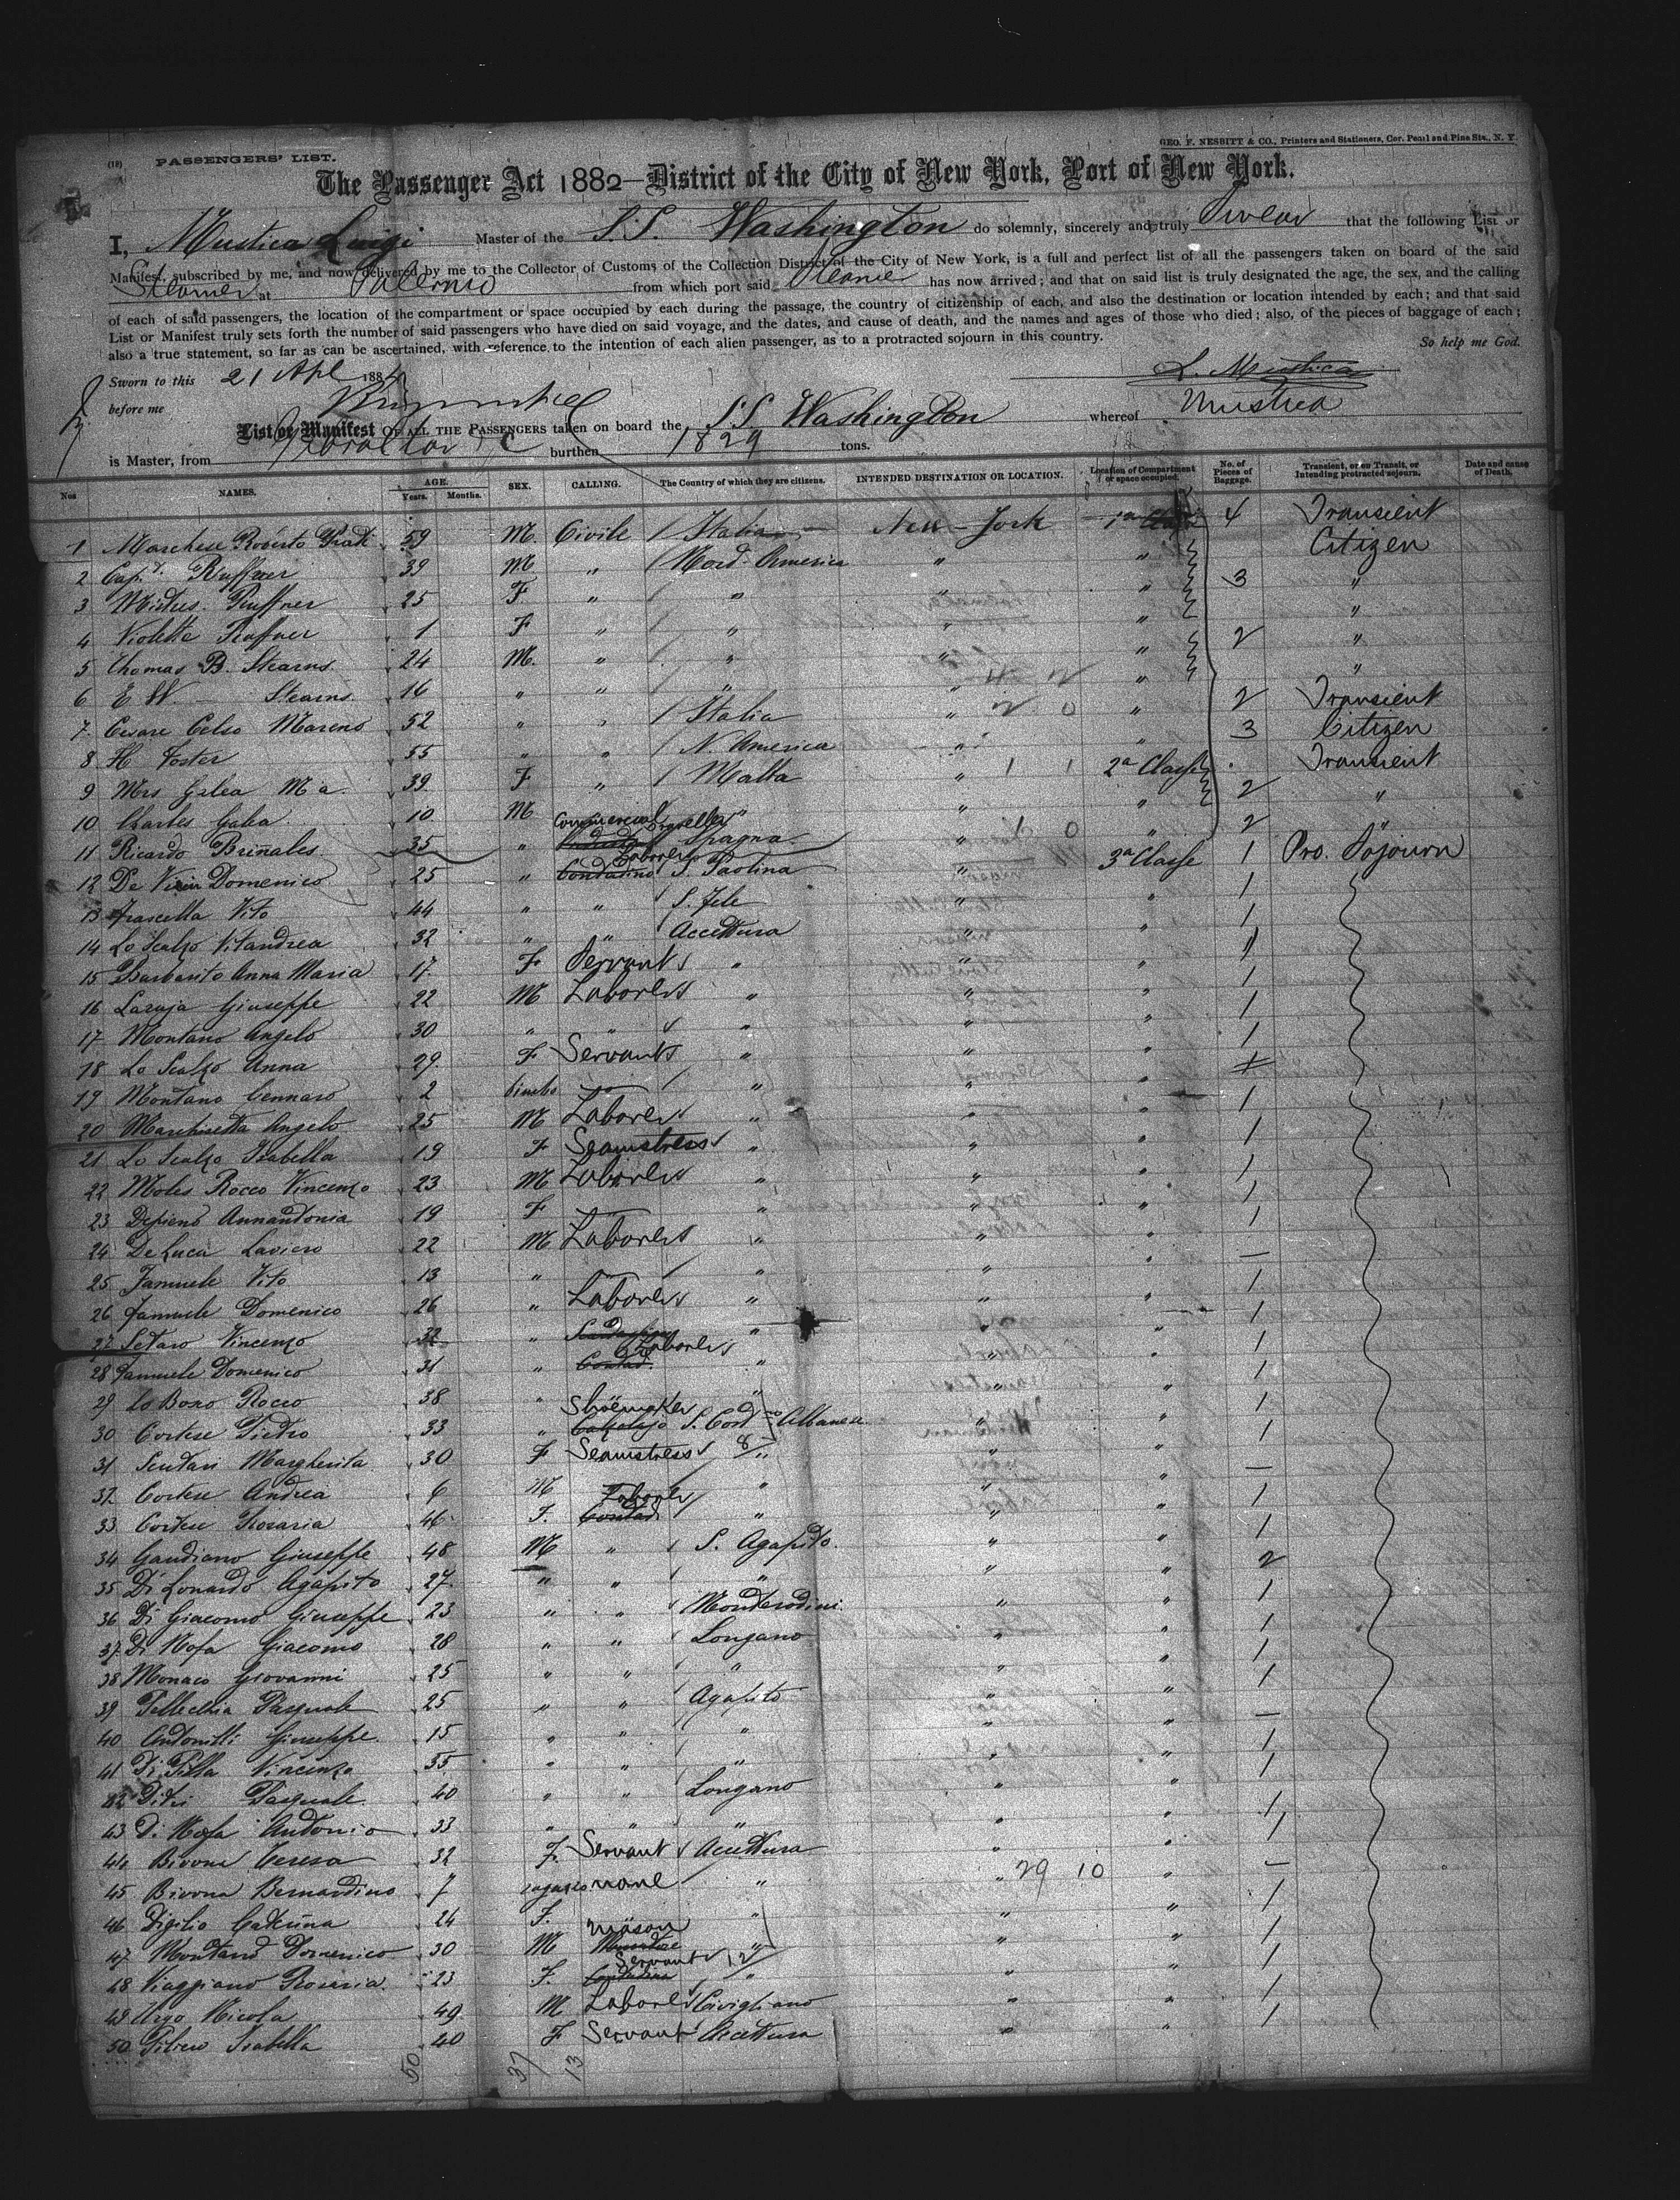 GEO. F. NESBITT & CO., Printers and Stationers, Cor. Pearl and Pine Sts., N. Y.
(18) PASSENGERS' LIST.
The Passenger Act 1882—District of the City of New York, Port of New York.
I, Mustica Luigi Master of the S.S. Washington do solemnly, sincerely and truly Swear that the following List or
Manifest, subscribed by me, and now delivered by me to the Collector of Customs of the Collection District of the City of New York, is a full and perfect list of all the passengers taken on board of the said
Steamer at Palermo from which port said Steamer has now arrived; and that on said list is truly designated the age, the sex, and the calling
of each of said passengers, the location of the compartment or space occupied by each during the passage, the country of citizenship of each, and also the destination or location intended by each; and that said
List or Manifest truly sets forth the number of said passengers who have died on said voyage, and the dates, and cause of death, and the names and ages of those who died; also, of the pieces of baggage of each;
also a true statement, so far as can be ascertained, with reference to the intention of each alien passenger, as to a protracted sojourn in this country. So help me God.
Sworn to this 21 Apl 188 L. Mustica
before me
List or Manifest OF ALL THE PASSENGERS taken on board the S.S. Washington whereof Mustica
is Master, from Gibraltar burthen 1829 tons.
Nos NAMES. AGE. Years. Months. SEX. CALLING. The Country of which they are citizens. INTENDED DESTINATION OR LOCATION. Location of Compartment or space occupied. No. of Pieces of Baggage. Transient, or on Transit, or Intending protracted sojourn. Date and cause of Death.
1 Marchese Roberto 59 M. Civile Italia New-York 1a Classe 4 Transient
2 Capt. Ruffner 39 M " Nord America " " Citizen
3 Mistres. Ruffner 25 F. " " " " 3 "
4 Violetta Ruffner 1 F " " " " "
5 Thomas B. Stearns 24 M. " " " " 2 "
6 E W. Stearns 16 " " " " " "
7 Cesare Celso Moreno 52 " " Italia " 2 0 " 2 Transient
8 H Foster 55 " " N. America " " 3 Citizen
9 Mrs Galea Ma. 39 F " Malta " 1 1 2a Classe Transient
10 Charles Galea 10 M " " " 2 "
11 Ricardo Brinales 35 " Commercial Traveller Spagna " 1 0 " 2 "
12 De Domenico 25 " Contadino Laborer S. Paolina " 3a Classe 1 Pro. Sojourn
13 Frascella Vito 44 " " S. Fele " " 1
14 Lo Scalzo Vitandrea 32 " " Accettura " " 1
15 Barbarito Anna Maria 17 F Servant " " " 1
16 Laraja Giuseppe 22 M Laborer " " " 1
17 Montano Angelo 30 " " " " " 1
18 Lo Scalzo Anna 29 F Servant " " " 1
19 Montano Gennaro 2 bimbo " " "
20 Marchisetta Angelo 25 M Laborer " " " 1
21 Lo Scalzo Isabella 19 F Seamstress " " " 1
22 Moles Rocco Vincenzo 23 M Laborer " " " 1
23 Depiero Annantonia 19 F " " " 1
24 De Luca Laviero 22 M Laborer " " " 1
25 Jamuele Vito 13 " " " " —
26 Jamuele Domenico 26 " Laborer " " " 1
27 Setaro Vincenzo 32 " " " 1
28 Jamuele Domenico 31 " Contad. Laborer " " " 1
29 Lo Bono Rocco 38 " " " " 1
30 Cortese Pietro 33 " Calzolajo Shoemaker S. Cosmo Albanese " " 1
31 Scutari Margherita 30 F Seamstress 8/" " " 1
32 Cortese Andrea 6 M " " " —
33 Cortese Rosaria 46 F. Contad. Laborer " " " 1
34 Gaudiano Giuseppe 48 M " S. Agapito. " " 1
35 Di Lonardo Agapito 27 " " " " " 2
36 Di Giacomo Giuseppe 23 " " Monterodini " " 1
37 Di Nofa Giacomo 28 " " Longano " " 1
38 Monaco Giovanni 25 " " " " " 1
39 Pellecchia Pasquale 25 " " Agapito " " 1
40 Antonilli Giuseppe 15 " " " " " —
41 Di Pilla Vincenzo 35 " " " " " 1
42 Ditri Pasquale 40 " " Longano " " 1
43 Di Nofa Antonio 33 " " " " " 1
44 Bivona Teresa 32 F. Servant Accettura " " 1
45 Bivona Bernardino 7 ragazzo none " " 29 10 " —
46 Digilio Caterina 24 F. " " " 1
47 Montano Domenico 30 M Muratore Mason " " " 1
48 Viaggiano Rosaria 23 F. Contadina Servant 12/" " " 1
49 Nicola 49 M Laborer Civigliano " " 1
50 Isabella 40 F Servant Accettura " " 1
50 37 13